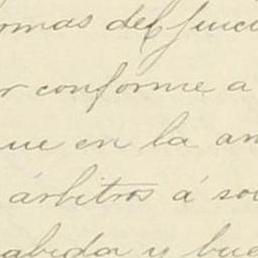 ormas del juici
r conforme a
ue en la am
árbitros á so
abida y bue